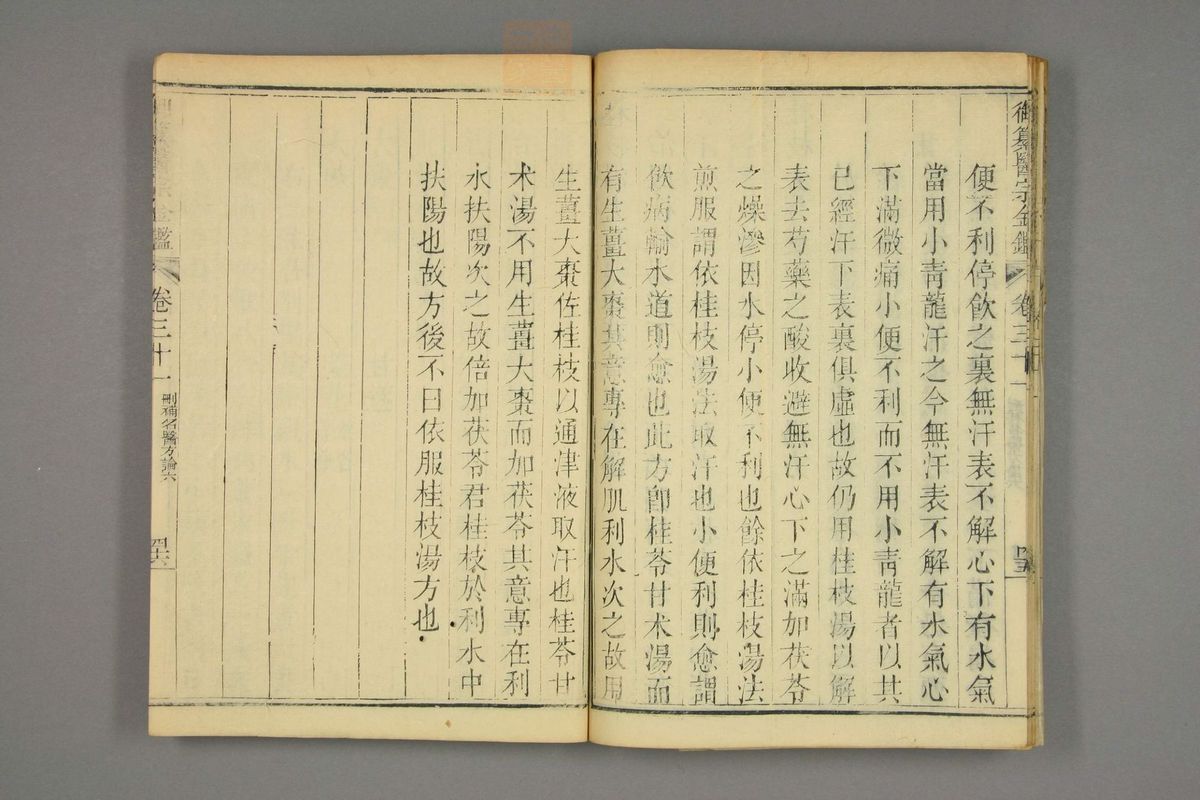 御纂醫宗金鑑 卷三十一
便不利停飮之裏無汗表不解心下有水氣
當用小靑龍汗之今無汗表不解有水氣心
下滿微痛小便不利而不用小靑龍者以其
已經汗下表裏俱虛也故仍用桂枝湯以解
表去芍藥之酸收避無汗心下之滿加茯苓
之燥滲因水停小便不利也餘依桂枝湯法
煎服謂依桂枝湯法取汗也小便利則愈謂
飮病輸水道則愈也此方卽桂苓甘术湯而
有生薑大棗其意專在解肌利水次之故用
生薑大棗佐桂枝以通津液取汗也桂苓甘
术湯不用生薑大棗而加茯苓其意專在利
水扶陽次之故倍加茯苓君桂枝於利水中
扶陽也故方後不曰依服桂枝湯方也
金鑑 卷三十一 刪補名醫方論六